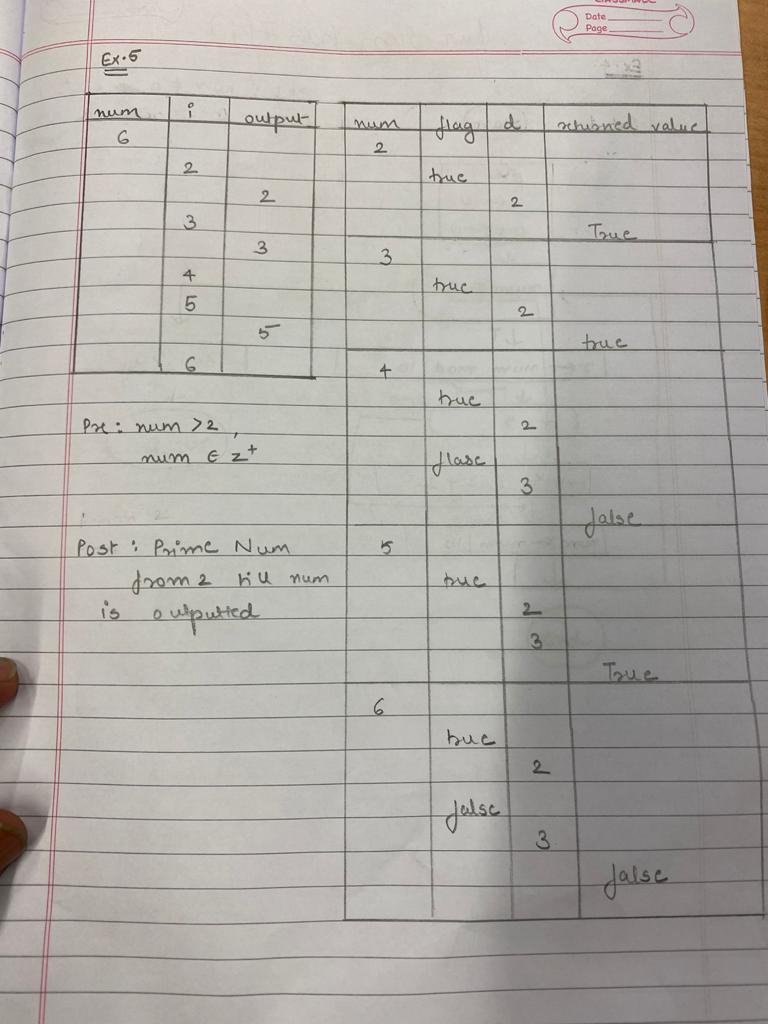 CLASSMATE
Date
Page
Ex.5
num i output
6
2
2
3
3
4
5
5
6
Pre: num >2,
num ∈ z+
Post: Prime Num
from 2 till num
is outputted
num flag d returned value
2
true
2
True
3
true
2
true
4
true
2
flase
3
false
5
true
2
3
True
6
true
2
false
3
false